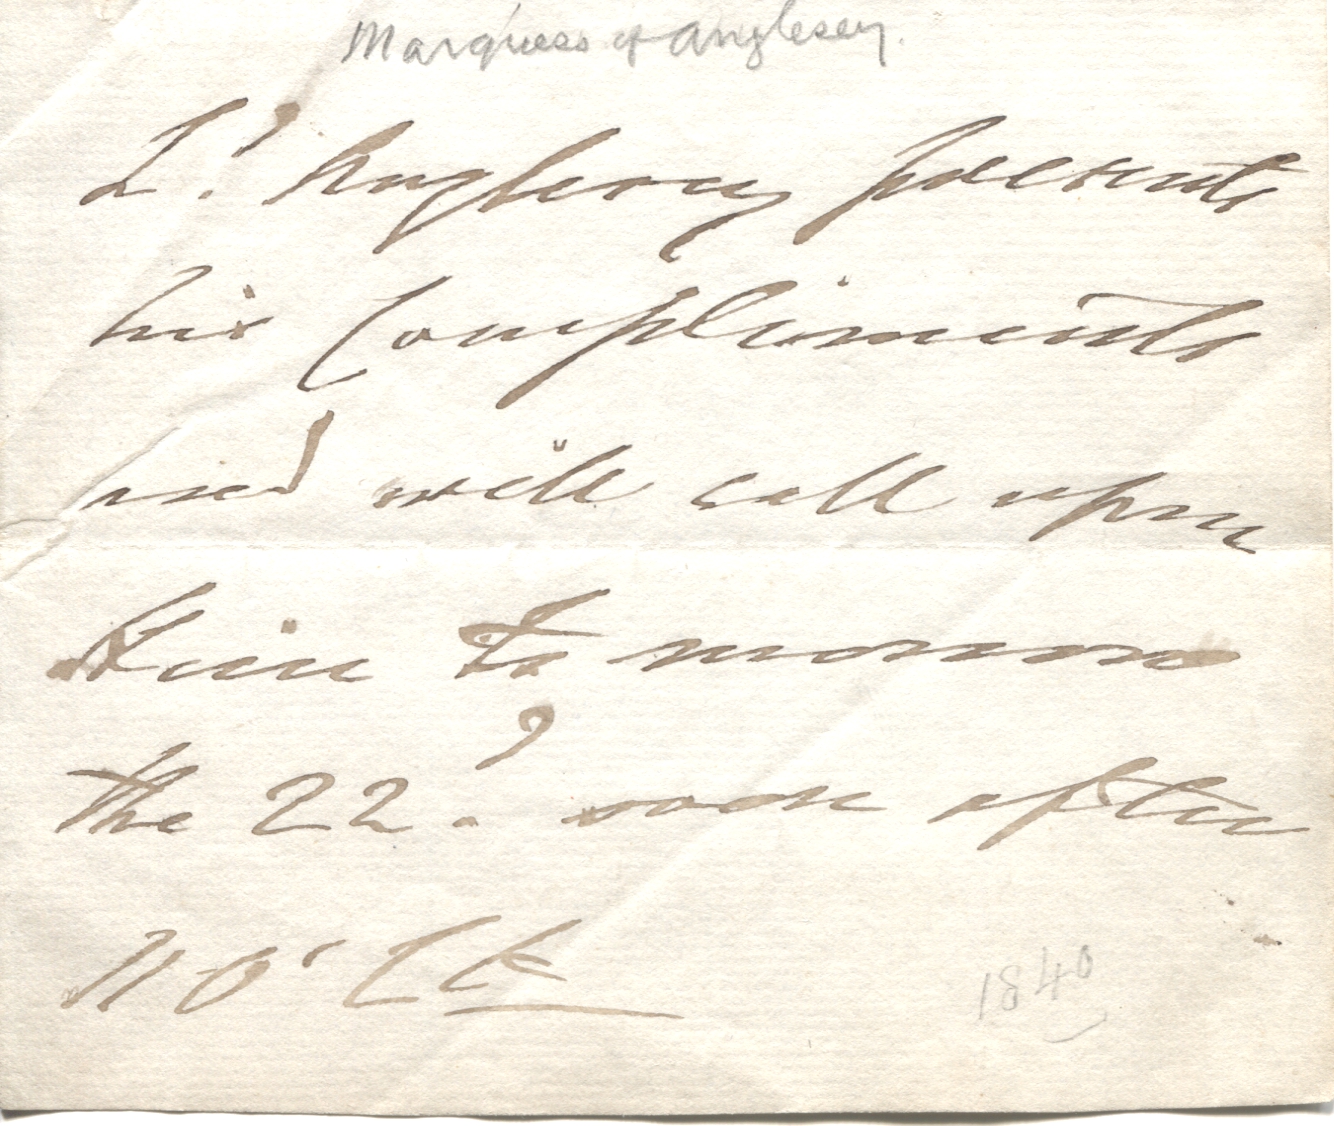 Marquess of Anglesey.
Ld. Anglesey presents
his Compliments
and will call upon
him to morrow
the 22d. soon after
11 O'Clk
1840